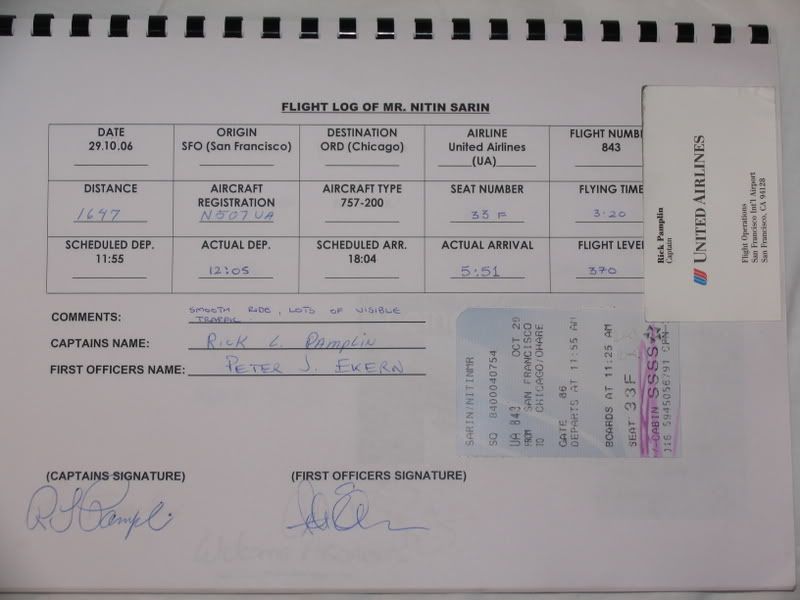 FLIGHT LOG OF MR. NITIN SARIN
DATE ORIGIN DESTINATION AIRLINE FLIGHT NUMB
29.10.06 SFO (San Francisco) ORD (Chicago) United Airlines 843
(UA)
DISTANCE AIRCRAFT AIRCRAFT TYPE SEAT NUMBER FLYING TIME
REGISTRATION 757-200
1647 N507UA 33 F 3:20
SCHEDULED DEP. ACTUAL DEP. SCHEDULED ARR. ACTUAL ARRIVAL FLIGHT LEVEL
11:55 12:05 18:04 5:51 370
COMMENTS: SMOOTH RIDE, LOTS OF VISIBLE
TRAFFIC
CAPTAINS NAME: RICK L. PAMPLIN
FIRST OFFICERS NAME: PETER J. EKERN
(CAPTAINS SIGNATURE) (FIRST OFFICERS SIGNATURE)
SARIN/NITINMR
SQ 8400040754
UA 843 OCT 29
FROM SAN FRANCISCO
TO CHICAGO/OHARE
GATE 86
DEPARTS AT 11:55 AM
BOARDS AT 11:25 AM
SEAT 33F
-CABIN SSSS
016 5945056791
Rick Pamplin
Captain
UNITED AIRLINES
Flight Operations
San Francisco Int'l Airport
San Francisco, CA 94128